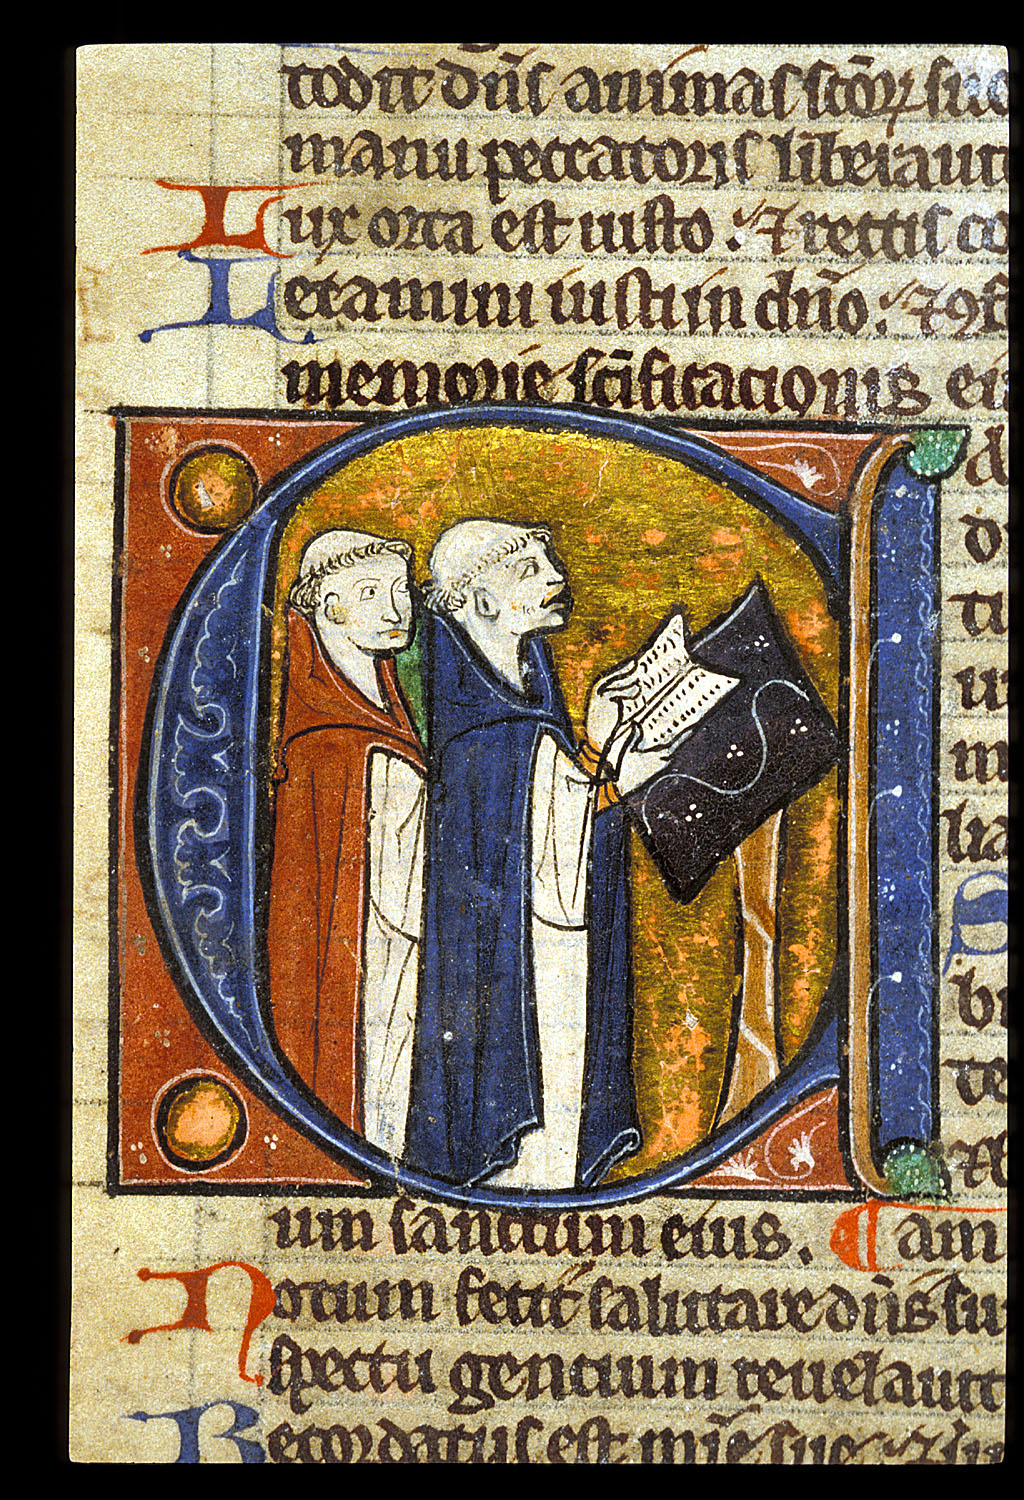 todit dn̄s animas sc̄oꝝ suo
manu peccatoris liberaui
Lux orta est iusto . ⁊ rectis co
Letamini iusti in dn̄o : ⁊ ꝯf
memorie sc̄ificationis ei
C
lia
bi
te
um sanctum eius. ¶ am
Notum fecit salutare dn̄s su
spectu gentium reuelauit
Recordatus est mīe sue ⁊